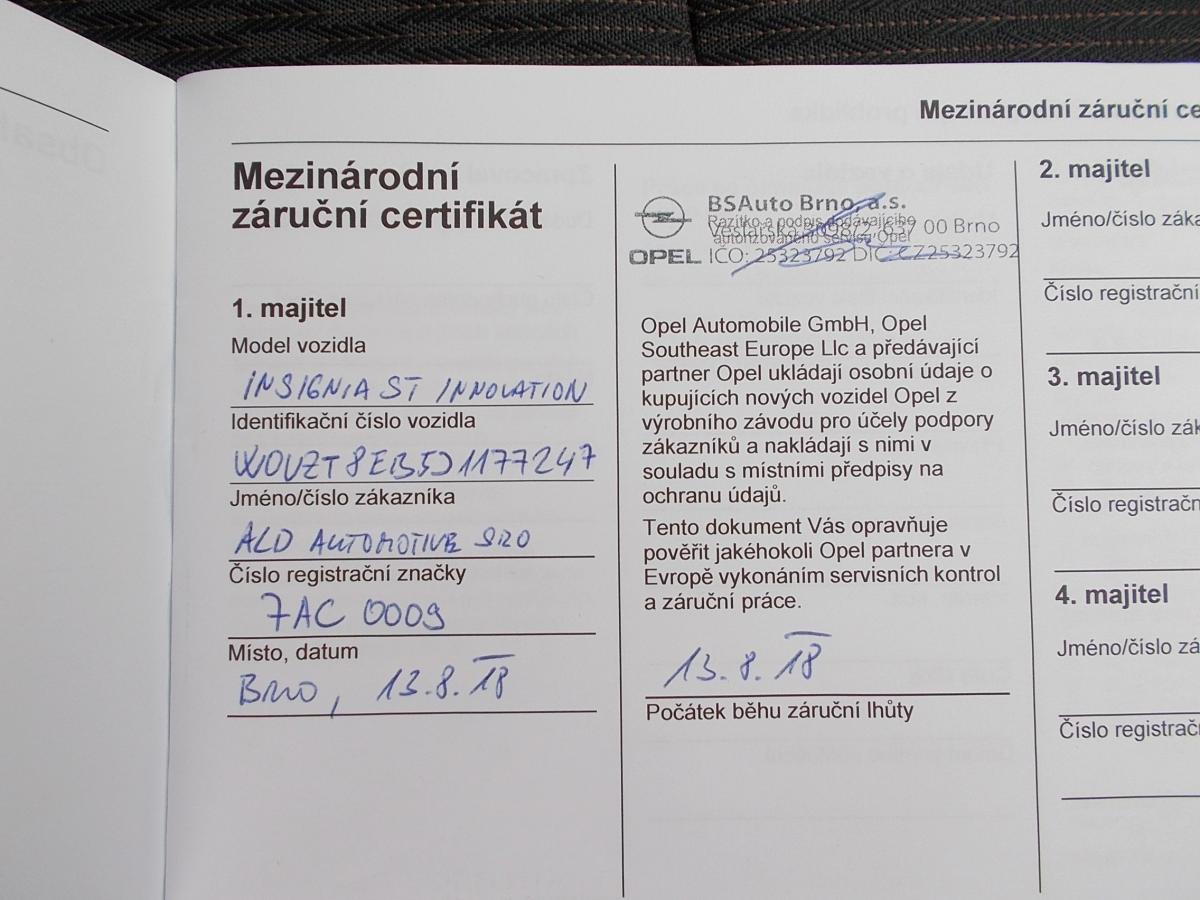 Mezinárodní záruční ce
Mezinárodní
záruční certifikát
1. majitel
Model vozidla
INSIGNIA ST INNOVATION
Identifikační číslo vozidla
W0VZT8EB5J1177247
Jméno/číslo zákazníka
ALD AUTOMOTIVE SRO
Číslo registrační značky
7AC 0009
Místo, datum
Brno, 13.8.18
BSAuto Brno, a.s.
Razítko a podpis dodávajícího
637 00 Brno
autorizovaného servisu Opel
OPEL IČO: 25323792 DIČ: CZ25323792
Opel Automobile GmbH, Opel
Southeast Europe Llc a předávající
partner Opel ukládají osobní údaje o
kupujících nových vozidel Opel z
výrobního závodu pro účely podpory
zákazníků a nakládají s nimi v
souladu s místními předpisy na
ochranu údajů.
Tento dokument Vás opravňuje
pověřit jakéhokoli Opel partnera v
Evropě vykonáním servisních kontrol
a záruční práce.
13.8.18
Počátek běhu záruční lhůty
2. majitel
Jméno/číslo záka
Číslo registrační
3. majitel
Jméno/číslo zák
Číslo registračn
4. majitel
Jméno/číslo zá
Číslo registrač